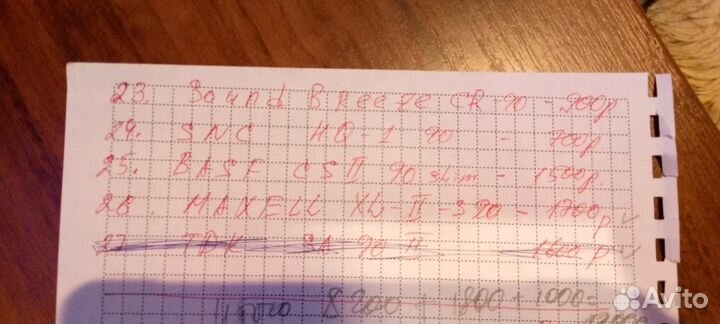 23. Sound Breeze CR-90 - 900р.
24. SNC HQ-1 90 - 700р.
25. BASF CSII 90 slim - 1500р.
26. MAXELL XL-II-S 90 - 1700р ✓
27. TDK SA 90 II 1600р ✓
8200 + 1800 + 1000=
Avito